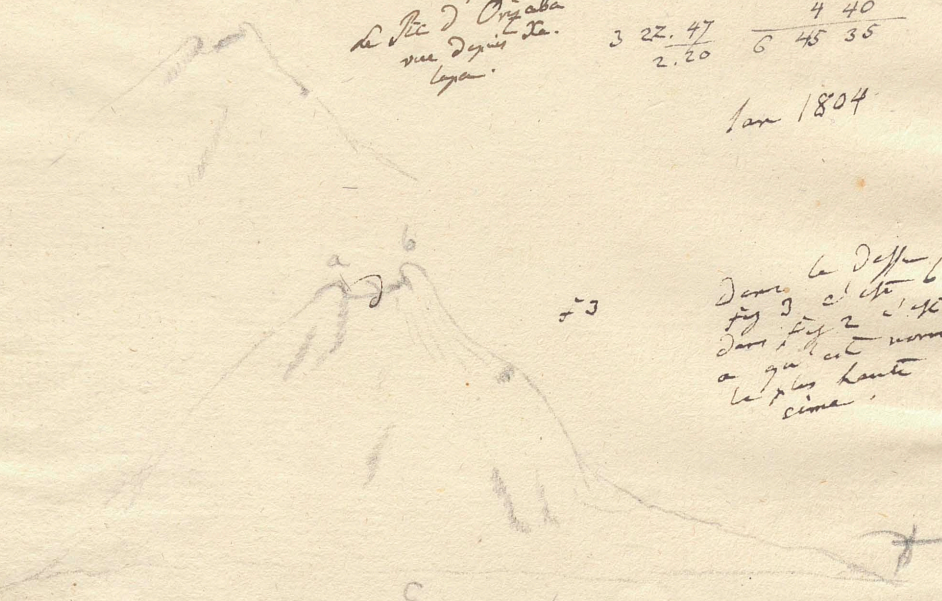 Le Pic d'Orizaba
vue depuis Xa-
lapa.
3 22.47
2.20
4 40
6 45 35
Jan 1804
a
b
d
F 3
Dans le
Fig 3 c'est b
dans Fig 2 c'est
a qui est
le plus haute
cime.
c